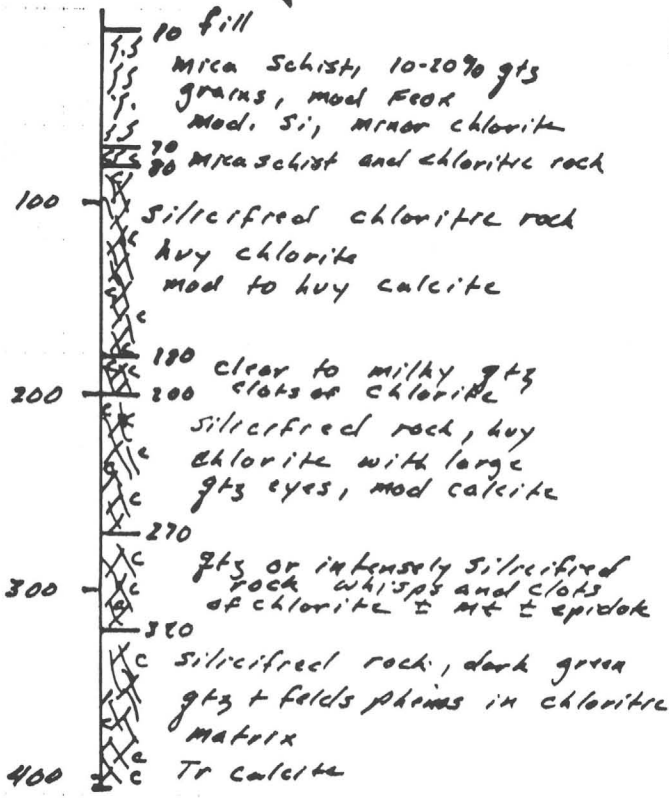 10 fill
mica schist, 10-20% qtz
grains, mod FeOx
mod. Si, minor chlorite
70
80 mica schist and chloritic rock
100
silicified chloritic rock
hvy chlorite
mod to hvy calcite
180 clear to milky qtz
200 200 clots of chlorite
silicified rock, hvy
chlorite with large
qtz eyes, mod calcite
270
qtz or intensely silicified
300 rock whisps and clots
of chlorite ± mt ± epidote
320
silicified rock, dark green
qtz + felds phenos in chloritic
matrix
400 Tr calcite